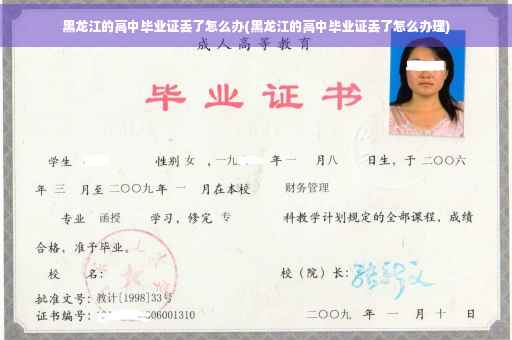 黑龙江的高中毕业证丢了怎么办(黑龙江的高中毕业证丢了怎么办理)
成人高等教育
毕业证书
学生 性别 女 ，一九 年 一 月八 日生，于 二〇〇六
年 三 月至 二〇〇九 年 一 月在本校 财务管理
专业 函授 学习，修完 专 科教学计划规定的全部课程，成绩
合格，准予毕业。
校 名： 校（院）长：
批准文号：教计[1998]33号
证书编号： 06001310 二〇〇九 年 一 月 十 日